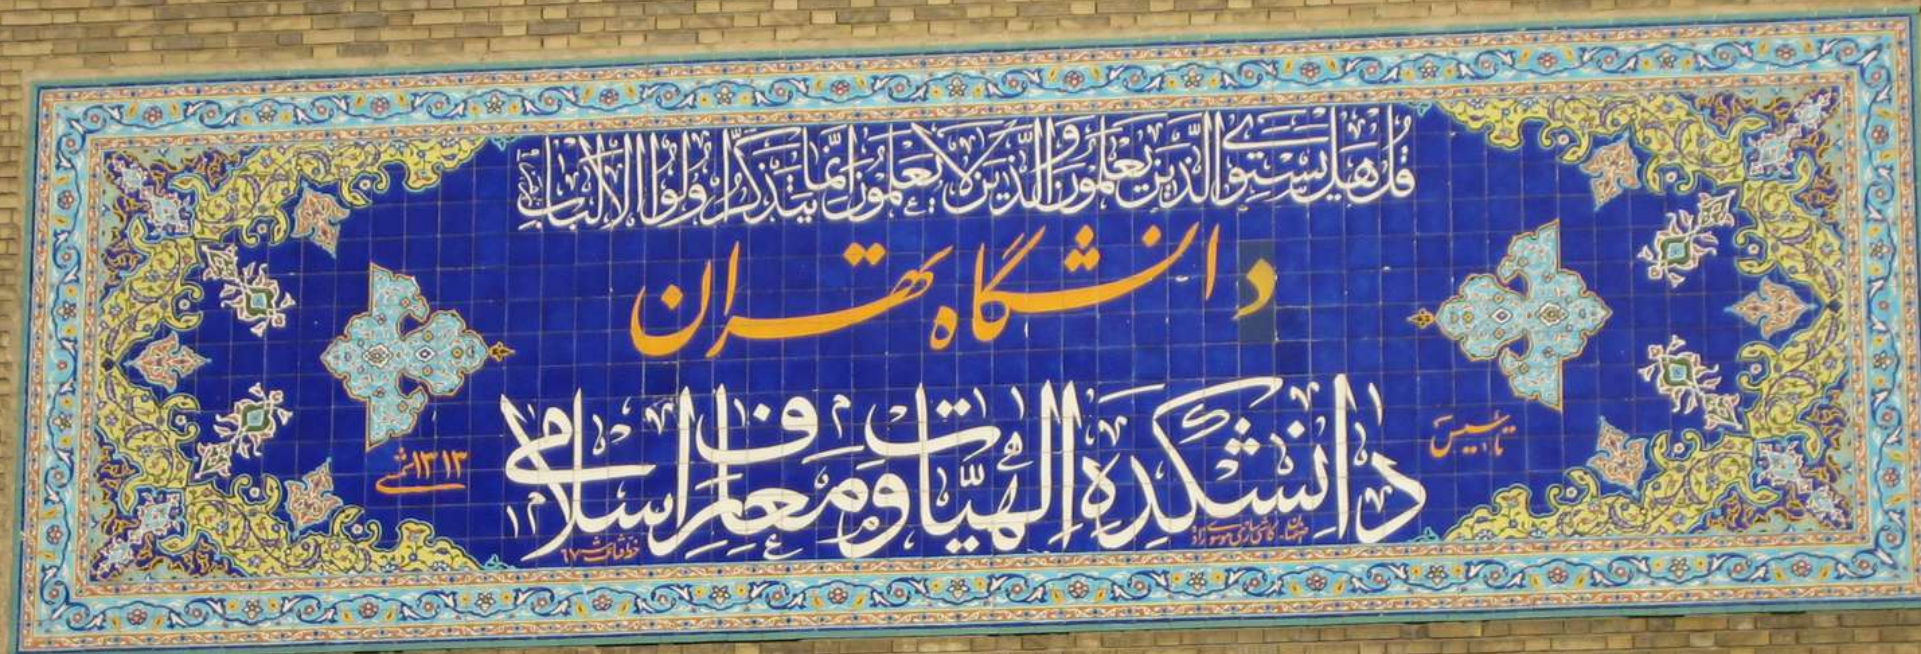 قُل هَل يَستَوِی الَّذینَ یَعلَمُونَ وَالَّذینَ لا یَعلَمُونَ اِنَّما یَتَذَکَّرُ اُولُوا الاَلبابِ
دانشگاه تهران
دانشکده الهیّات و معارف اسلامی
تأسیس
۱۳۱۳ شمسی
اصفهان کاشی سازی موسوی زاد
خط فتائت ۶۷